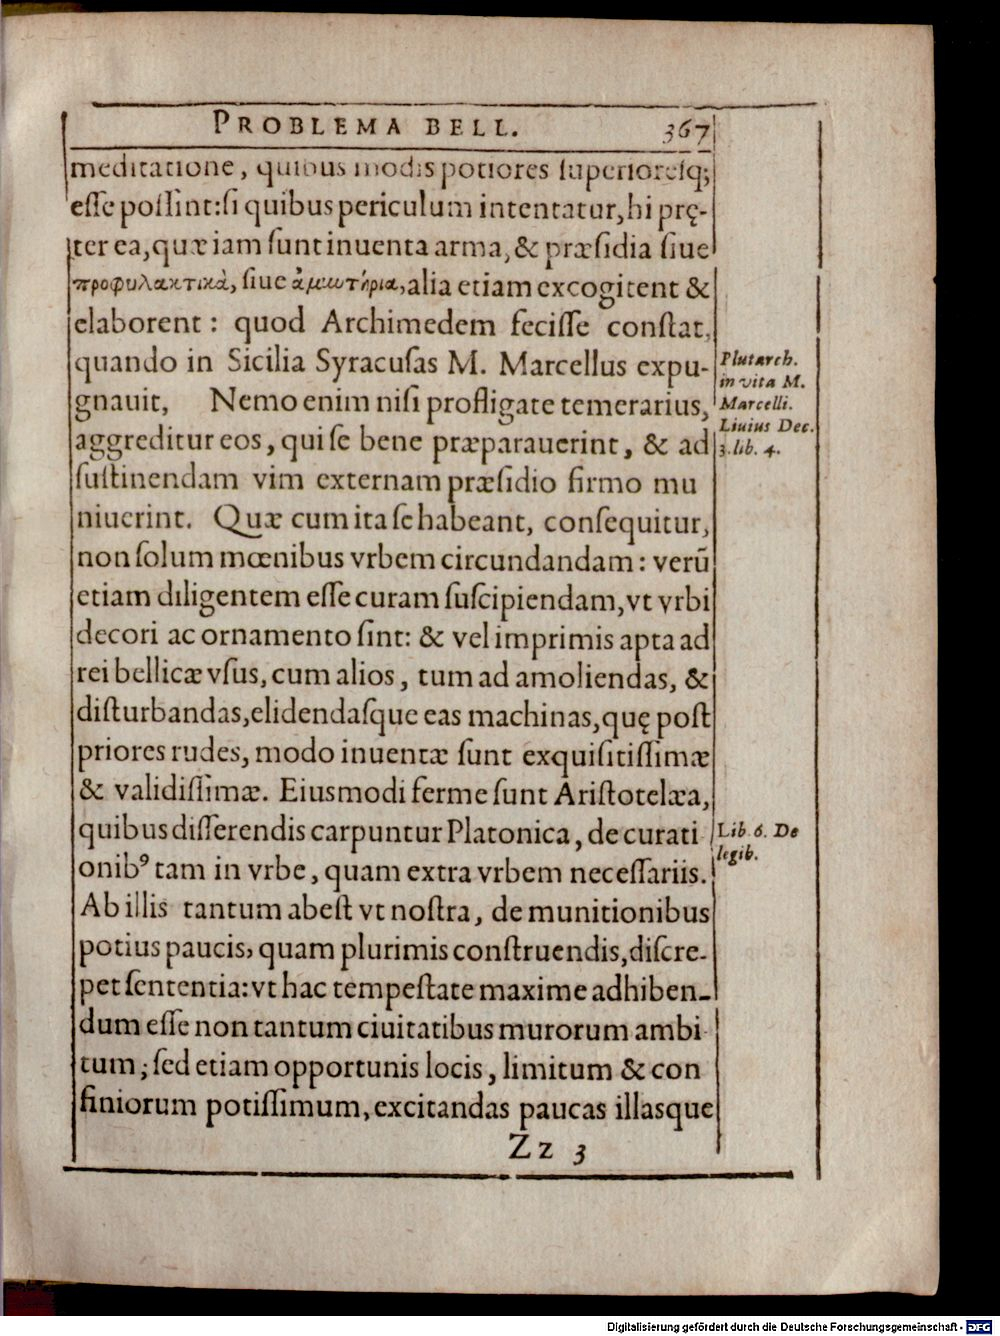 PROBLEMA BELL. 367
meditatione, quibus modis potiores superioresq;
eſſe poſſint: ſi quibus periculum intentatur, hi prę-
ter ea, quæ iam ſunt inuenta arma, & præſidia ſiue
προφυλακτικὰ, ſiue ἀμωτήρια, alia etiam excogitent &
elaborent: quod Archimedem feciſſe conſtat,
quando in Sicilia Syracuſas M. Marcellus expu-
gnauit, Nemo enim niſi profligate temerarius,
aggreditur eos, qui ſe bene præparauerint, & ad
ſuſtinendam vim externam præſidio firmo mu
niuerint. Quæ cum ita ſe habeant, conſequitur,
non ſolum mœnibus vrbem circundandam: verũ
etiam diligentem eſſe curam ſuſcipiendam, vt vrbi
decori ac ornamento ſint: & vel imprimis apta ad
rei bellicæ vſus, cum alios, tum ad amoliendas, &
diſturbandas, elidendaſque eas machinas, quę poſt
priores rudes, modo inuentæ ſunt exquiſitiſſimæ
& validiſſimæ. Eiusmodi ferme ſunt Ariſtotelæa,
quibus diſſerendis carpuntur Platonica, de curati
onibꝰ tam in vrbe, quam extra vrbem neceſſariis.
Ab illis tantum abeſt vt noſtra, de munitionibus
potius paucis, quam plurimis conſtruendis, diſcre-
pet ſententia: vt hac tempeſtate maxime adhiben-
dum eſſe non tantum ciuitatibus murorum ambi
tum; ſed etiam opportunis locis, limitum & con
finiorum potiſſimum, excitandas paucas illasque
Zz 3
Plutarch.
in vita M.
Marcelli.
Liuius Dec.
3. lib. 4.
Lib. 6. De
legib.
Digitalisierung gefördert durch die Deutsche Forschungsgemeinschaft - DFG